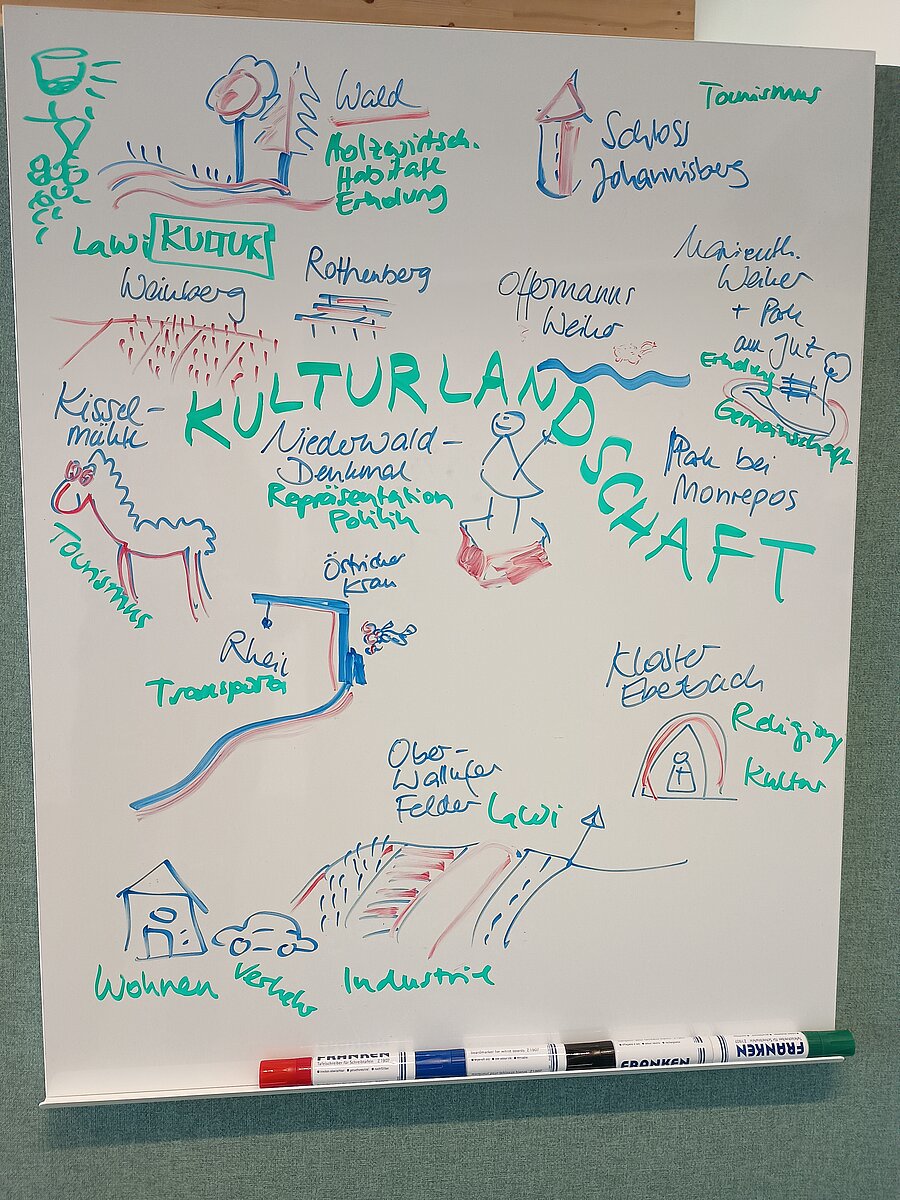 Wald
Holzwirtsch.
Habitate
Erholung
Schloss
Johannisberg
Tourismus
Lawi KULTUR
Weinberg
Rothenberg
Offermanns
Weiher
Marienth.
Weiher
+ Park
am Gut
Erholung
Gemeinschaft
KULTURLANDSCHAFT
Kissel-
mühle
Tourismus
Niederwald-
Denkmal
Repräsentation
Politik
Park bei
Monrepos
Östricher
Kran
Rhein
Transport
Kloster
Eberbach
Religion
Kultur
Ober-
Wallufer
Felder Lawi
Wohnen
Verkehr
Industrie
FRANKEN
FRANKEN
FRANKEN